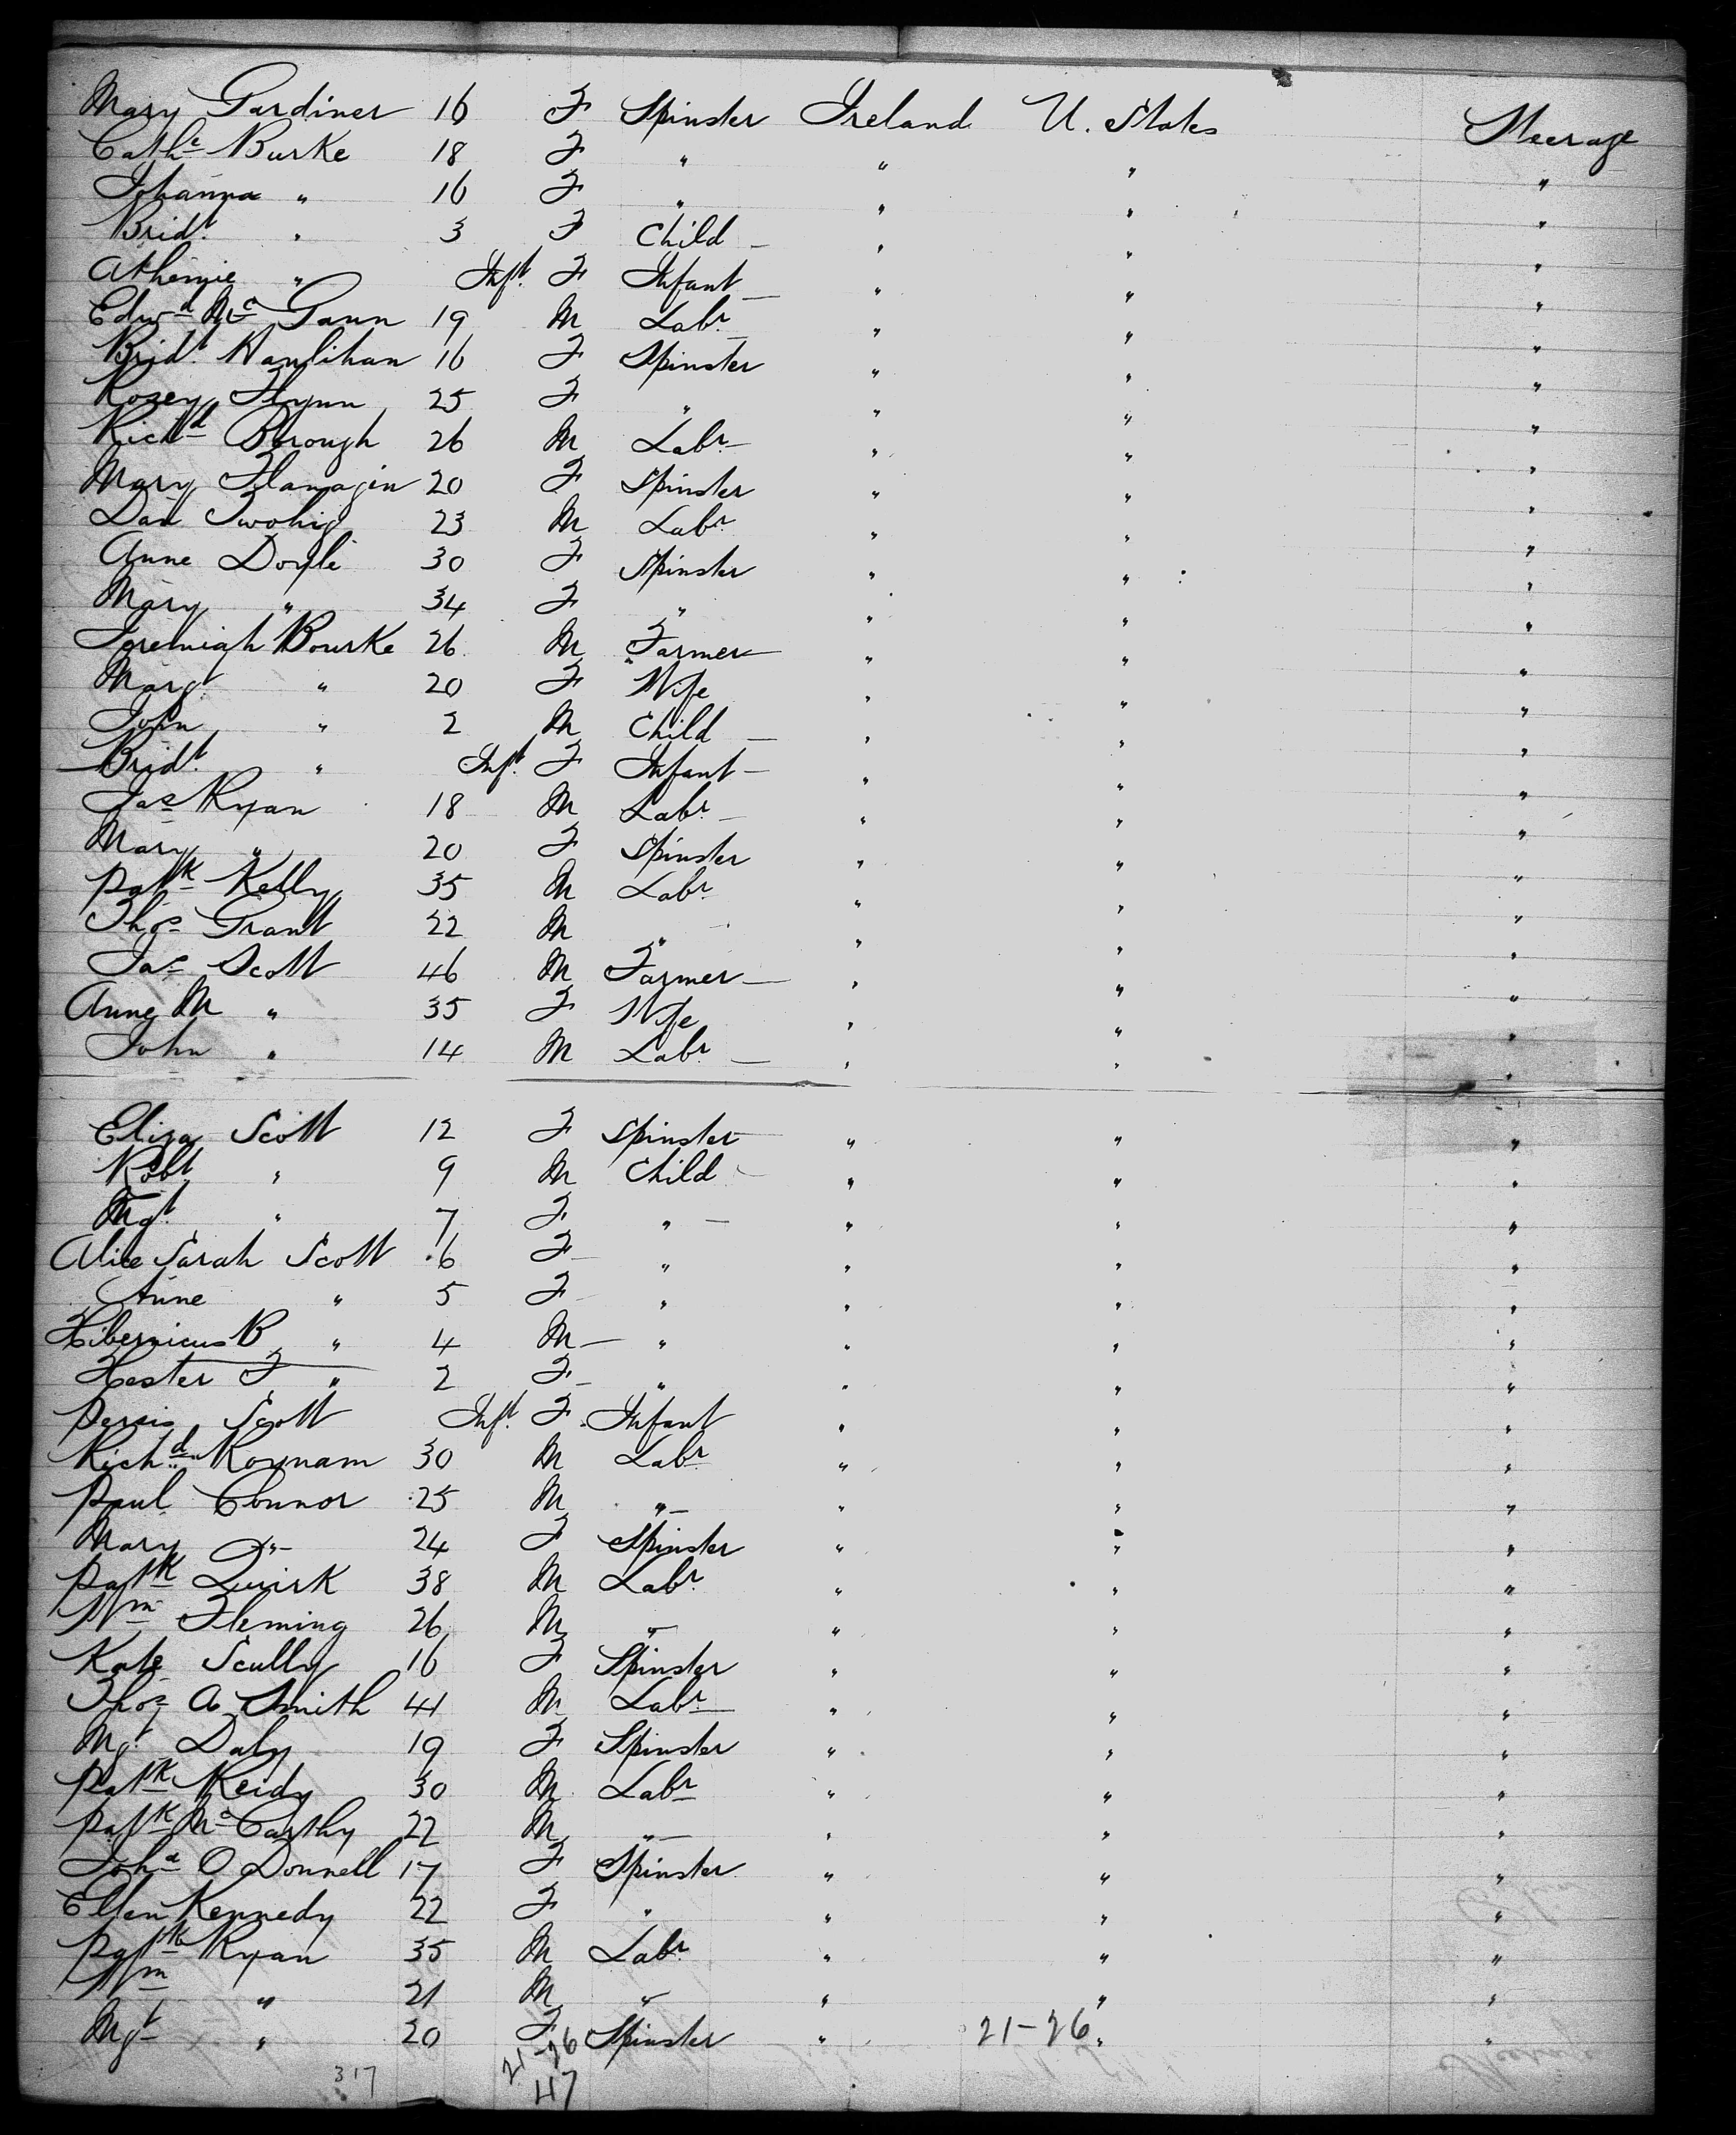 Mary Gardiner 16 F Spinster Ireland U. States Steerage
Cathe Burke 18 F " " " "
Johanna " 16 F " " " "
Bridt. " 3 F Child " " "
Athenzie " Inft. F Infant " " "
Edwd Mc Gann 19 M Labr " " "
Bridt. Hanlihan 16 F Spinster " " "
Rosey Flynn 25 F " " " "
Richd Borough 26 M Labr " " "
Mary Flanagin 20 F Spinster " " "
Dan Twohig 23 M Labr " " "
Anne Doyle 30 F Spinster " " "
Mary " 34 F " " " "
Jeremiah Bourke 26 M Farmer " " "
Margt " 20 F Wife " " "
John " 2 M Child " " "
Bridt. " Inft. F Infant " " "
Jas Ryan 18 M Labr " " "
Mary " 20 F Spinster " " "
Patk Kelly 35 M Labr " " "
Thos Grant 22 M " " " "
Jas Scott 46 M Farmer " " "
Anne M " 35 F Wife " " "
John " 14 M Labr " " "
Eliza Scott 12 F Spinster " " "
Robt " 9 M Child " " "
Mgt " 7 F " " " "
Alice Sarah Scott 6 F " " " "
Anne " 5 F " " " "
Hibernicus B " 4 M " " " "
Hester F " 2 F " " " "
Persis Scott Inft. F Infant " " "
Richd 30 M Labr " " "
Paul Connor 25 M " " " "
Mary " 24 F Spinster " " "
Patk Quirk 38 M Labr " " "
Wm Fleming 26 M " " " "
Kate Scully 16 F Spinster " " "
Thos A Smith 41 M Labr " " "
Mgt Daly 19 F Spinster " " "
Patk Reidy 30 M Labr " " "
Patk Mc Carthy 22 M " " " "
Joha O Donnell 17 F Spinster " " "
Ellen Kennedy 22 F " " " "
Patk Ryan 35 M Labr " " "
Wm " 21 M " " " "
Mgt " 20 F Spinster " 21-26 " "
21-26
317 47